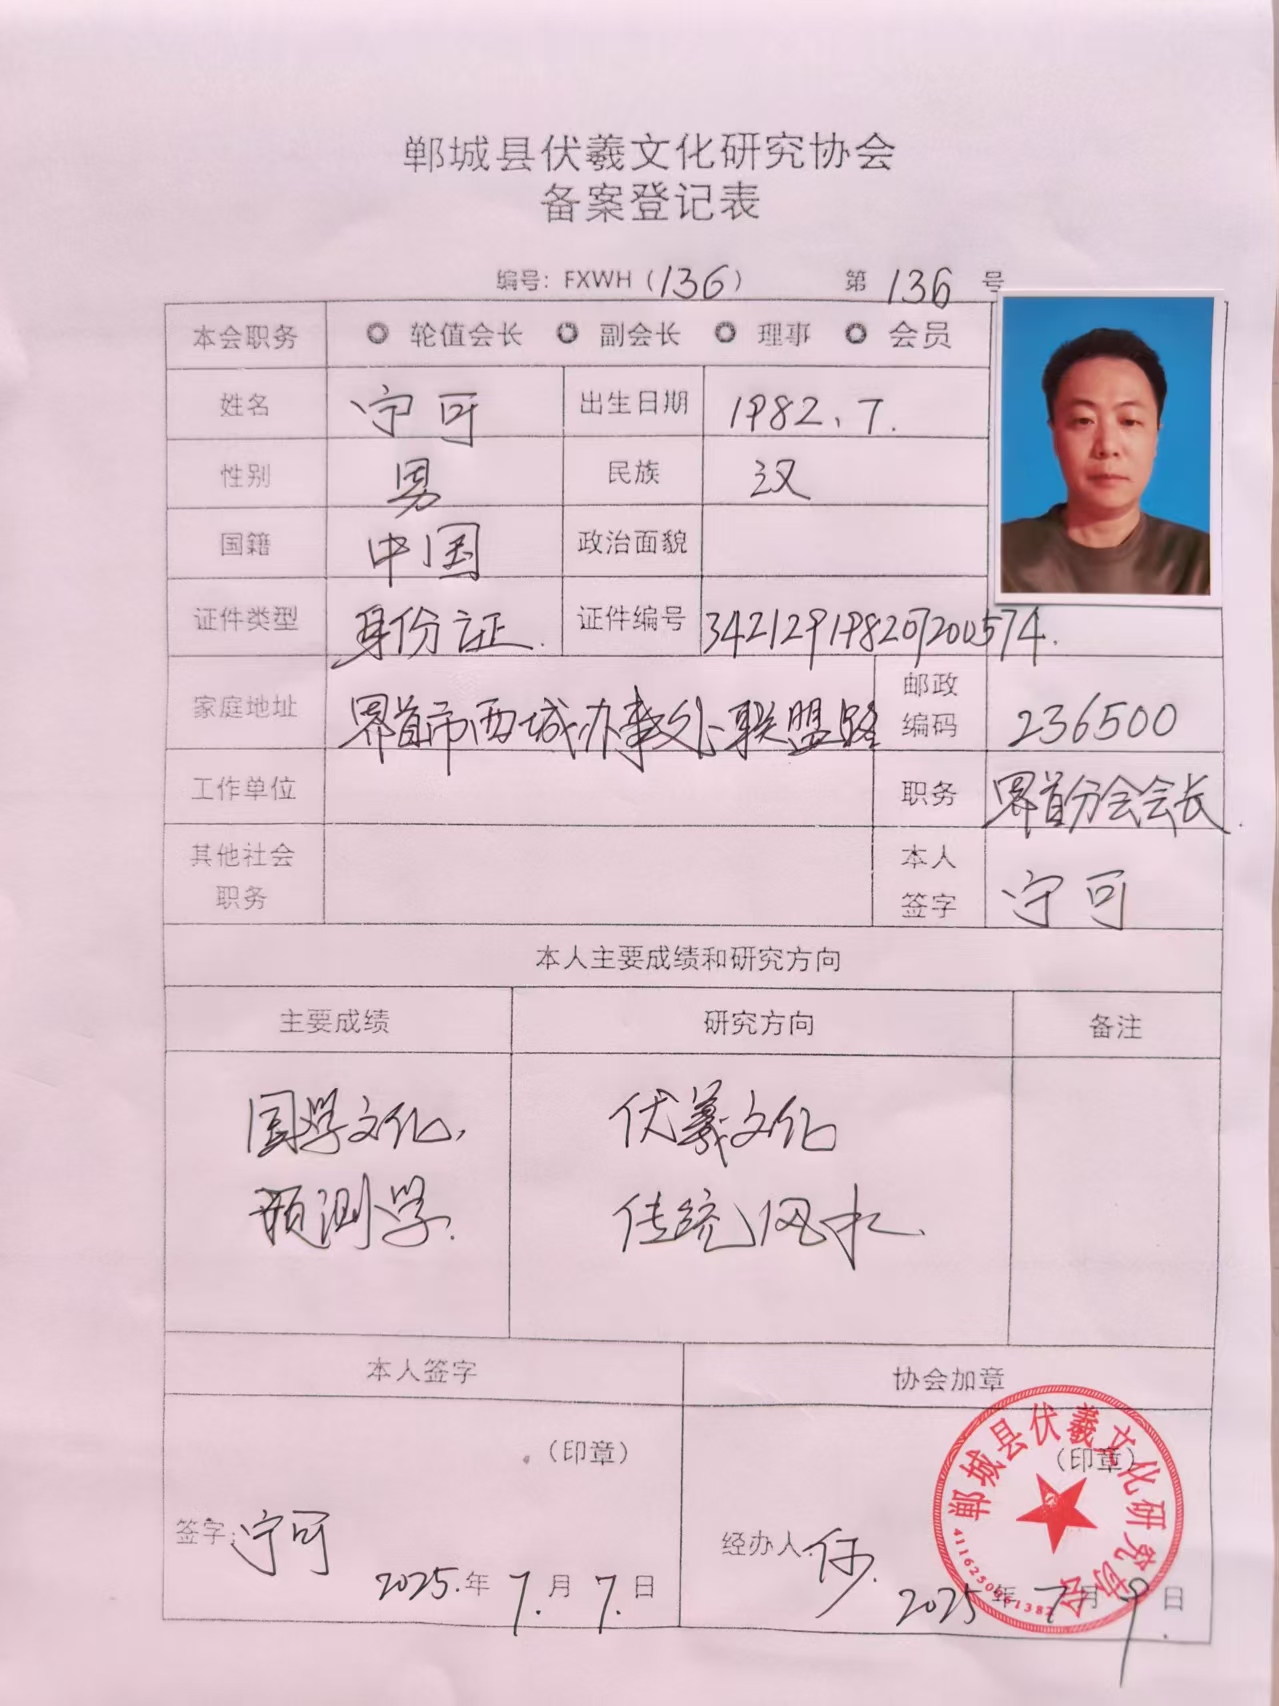 郸城县伏羲文化研究协会
备案登记表
编号：FXWH（136） 第 136 号
本会职务 轮值会长 副会长 理事 会员
姓名 宁可 出生日期 1982.7.
性别 男 民族 汉
国籍 中国 政治面貌
证件类型 身份证. 证件编号
家庭地址 界首市西城办事处联盟路 邮政编码 236500
工作单位 职务 界首分会会长.
其他社会职务 本人签字 宁可
本人主要成绩和研究方向
主要成绩 研究方向 备注
国学文化, 伏羲文化
预测学. 传统风水.
本人签字 协会加章
（印章） （印章）
签字：宁可 经办人
2025.年 7.月 7.日 2025年 7月 9日
郸城县伏羲文化研究协会